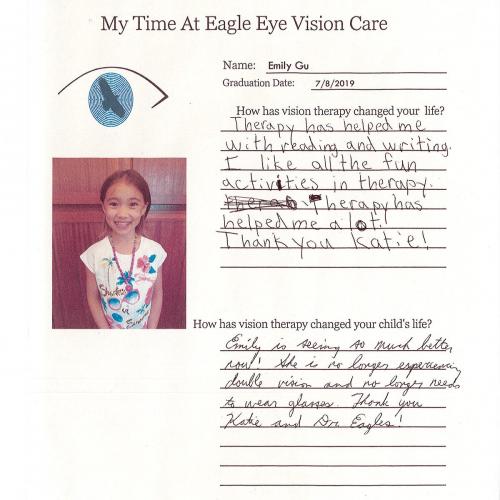 My Time At Eagle Eye Vision Care
Name: Emily Gu
Graduation Date: 7/8/2019
How has vision therapy changed your life?
Therapy has helped me
with reading and writing.
I like all the fun
activities in therapy.
Therapy has
helped me a lot.
Thank you Katie!
How has vision therapy changed your child's life?
Emily is seeing so much better
now! She is no longer experiencing
double vision and no longer needs
to wear glasses. Thank you
Katie and Dr. Eagles!